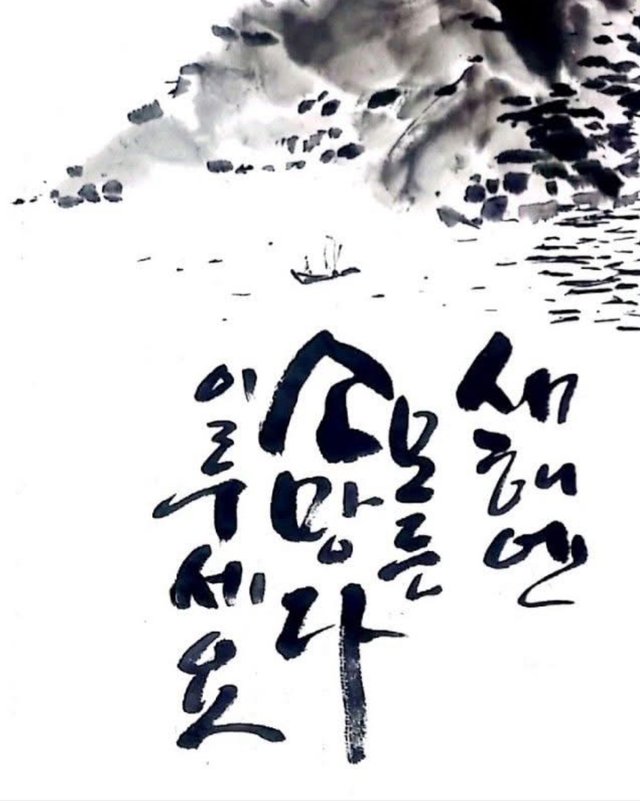 새해엔
모든
소망다
이루세요